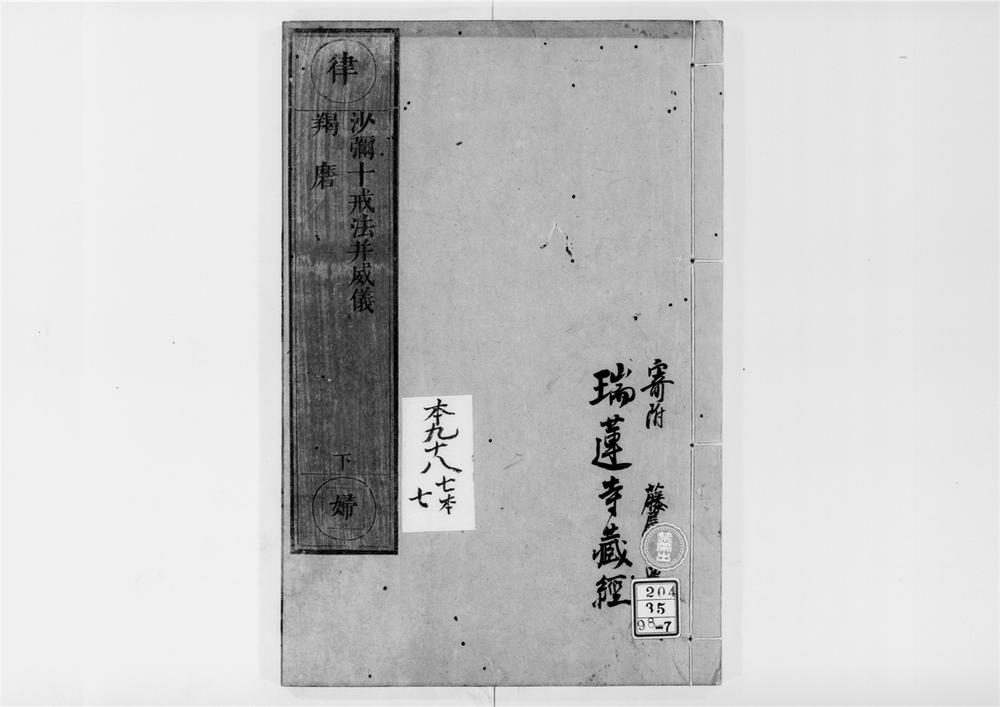 寄附 藤
瑞蓮寺藏經
禁帶出
204
35
98-7
本九十八
七本
七
律
沙彌十戒法并威儀
羯磨
下
婦